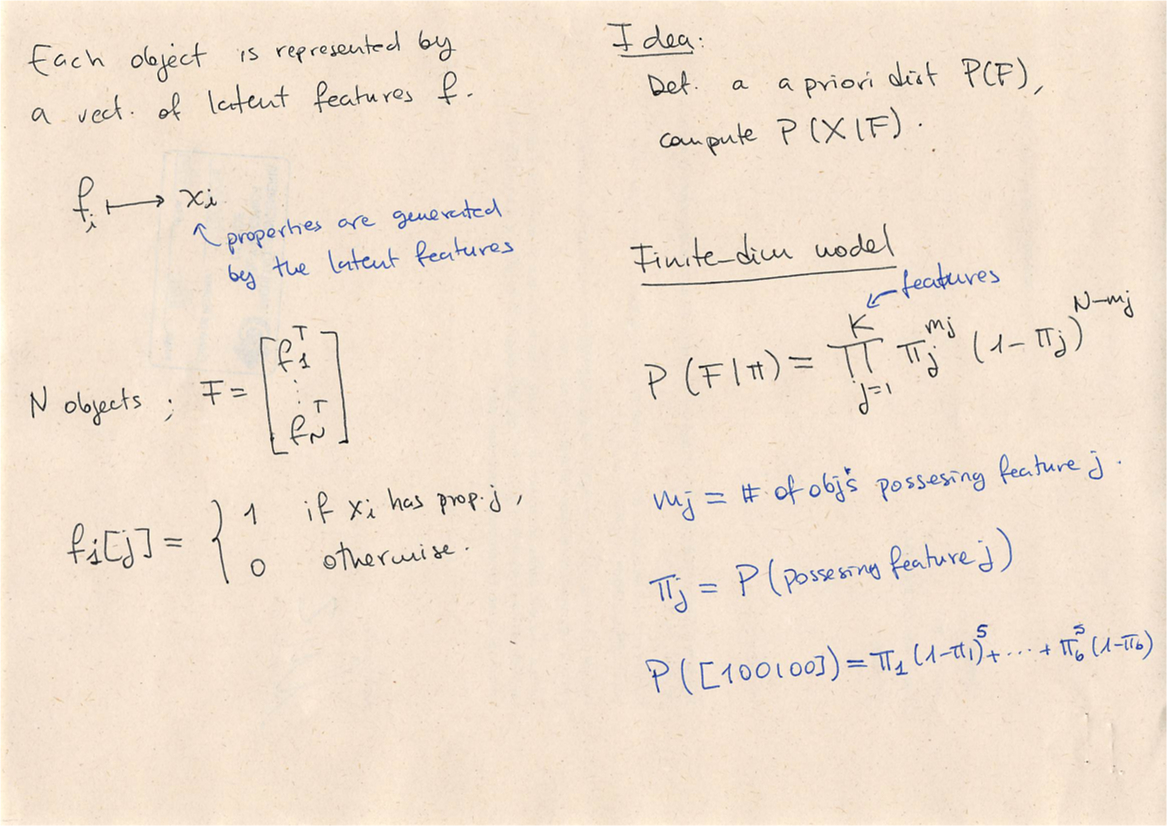 Each object is represented by
a vect. of latent features f.
f_i ↦ x_i
properties are generated
by the latent features
N objects ; F = [f_1^T ⋮ f_N^T]
f_i[j] = { 1 if x_i has prop. j,
0 otherwise.
Idea:
Def. a a priori dist P(F),
compute P(X|F).
Finite-dim model
features
P(F|π) = ∏_{j=1}^{K} π_j^{m_j} (1-π_j)^{N-m_j}
m_j = # of obj's possesing feature j.
π_j = P(possesing feature j)
P([100100]) = π_1 (1-π_1)^5 + ⋯ + π_6^5 (1-π_6)